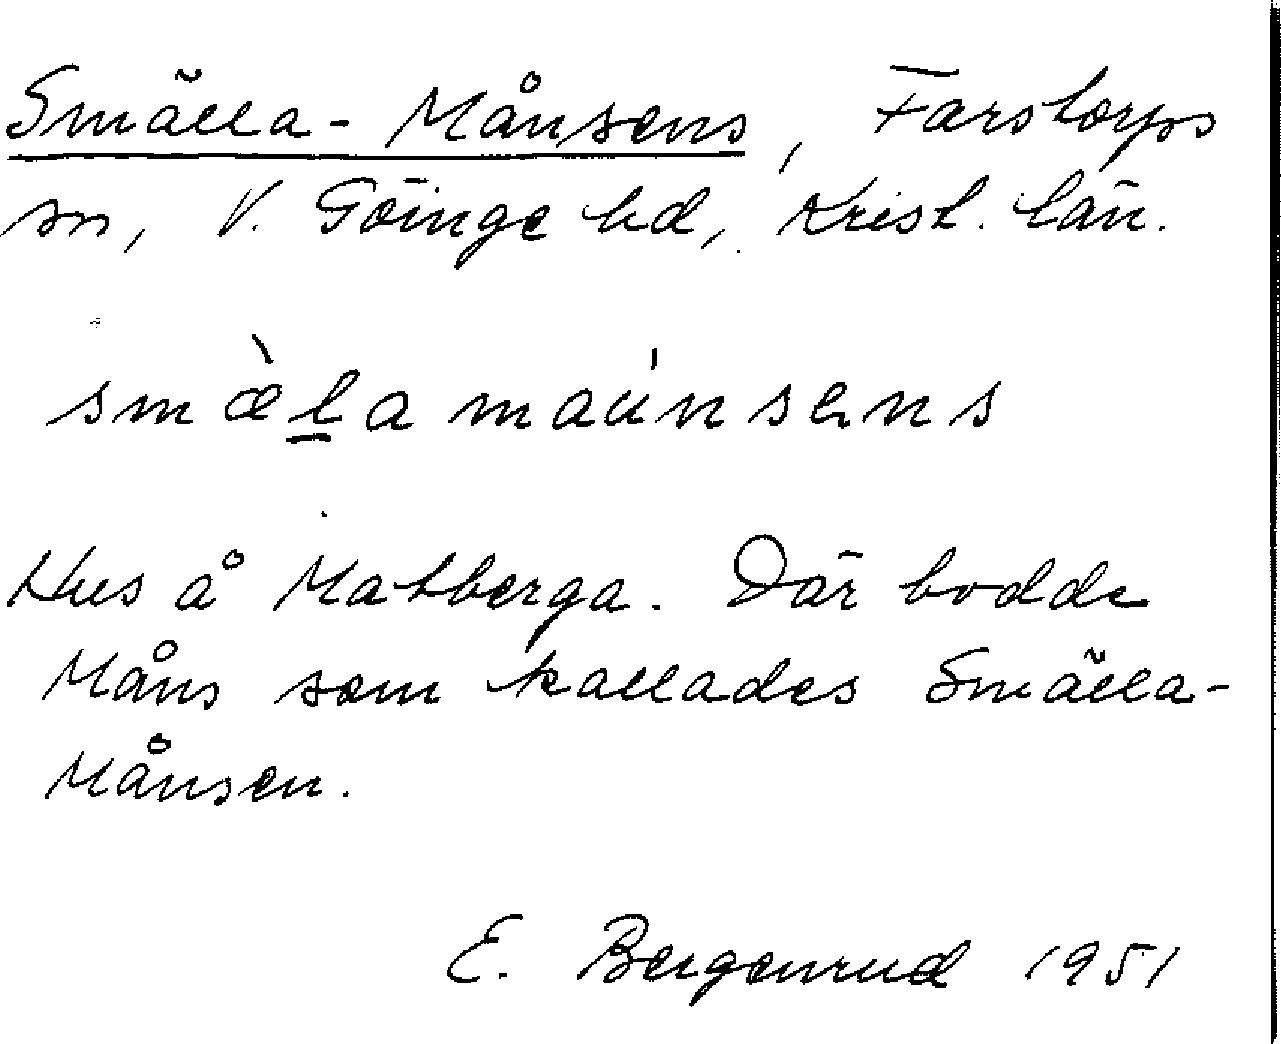 Smälla-Månsens, Farstorps
sn, V. Göinge hd, Krist. län.
smæ̀l̲a maúnsens
Hus å Matberga. Där bodde
Måns som kallades Smälla-
Månsen.
E. Bergenrud 1951